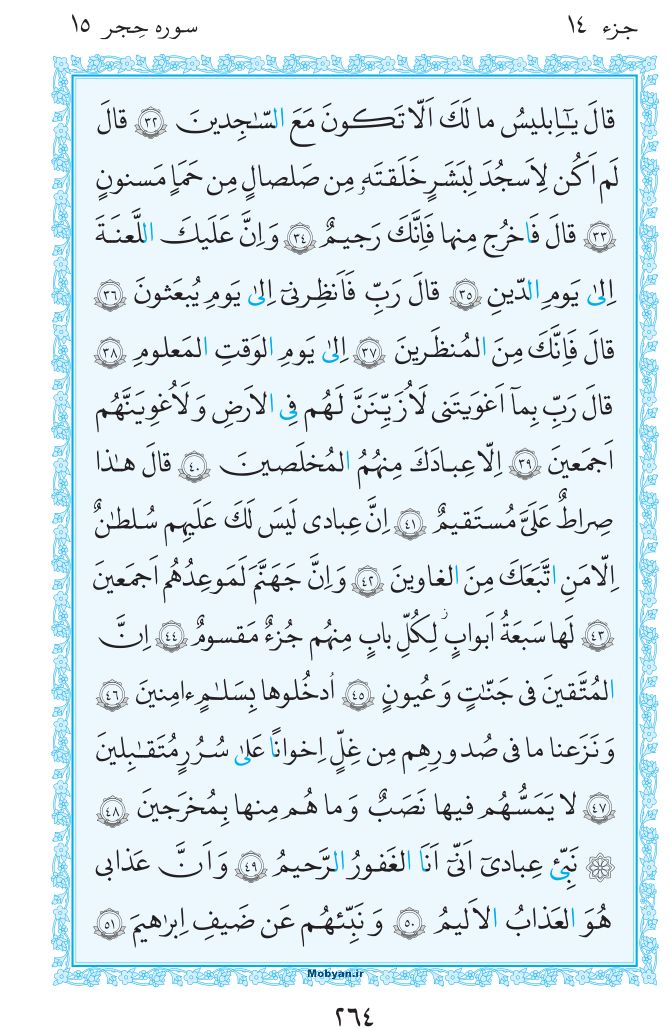 جزء ١٤
سوره حِجر ١٥
قالَ يـٰٓاِبليسُ ما لَكَ اَلّا تَكونَ مَعَ السّـٰجِدينَ ﴿٣٢﴾ قالَ
لَم اَكُن لِاَسجُدَ لِبَشَرٍ خَلَقتَهُۥ مِن صَلصالٍ مِن حَمَاٍ مَسنونٍ
﴿٣٣﴾ قالَ فَاخرُج مِنها فَاِنَّكَ رَجيمٌ ﴿٣٤﴾ وَ اِنَّ عَلَيكَ اللَّعنَةَ
اِلىٰ يَومِ الدّينِ ﴿٣٥﴾ قالَ رَبِّ فَاَنظِرنىٓ اِلىٰ يَومِ يُبعَثونَ ﴿٣٦﴾
قالَ فَاِنَّكَ مِنَ المُنظَرينَ ﴿٣٧﴾ اِلىٰ يَومِ الوَقتِ المَعلومِ ﴿٣٨﴾
قالَ رَبِّ بِمآ اَغوَيتَنى لَاُزَيِّنَنَّ لَهُم فِى الاَرضِ وَ لَاُغوِيَنَّهُم
اَجمَعينَ ﴿٣٩﴾ اِلّا عِبادَكَ مِنهُمُ المُخلَصينَ ﴿٤٠﴾ قالَ هـٰذا
صِراطٌ عَلَىَّ مُستَقيمٌ ﴿٤١﴾ اِنَّ عِبادى لَيسَ لَكَ عَلَيهِم سُلطـٰنٌ
اِلّا مَنِ اتَّبَعَكَ مِنَ الغاوينَ ﴿٤٢﴾ وَ اِنَّ جَهَنَّمَ لَمَوعِدُهُم اَجمَعينَ
﴿٤٣﴾ لَها سَبعَةُ اَبوابٍ ۚ لِكُلِّ بابٍ مِنهُم جُزءٌ مَقسومٌ ﴿٤٤﴾ اِنَّ
المُتَّقينَ فى جَنّـٰتٍ وَ عُيونٍ ﴿٤٥﴾ اُدخُلوها بِسَلـٰمٍ ءامِنينَ ﴿٤٦﴾
وَ نَزَعنا ما فى صُدورِهِم مِن غِلٍّ اِخوانًا عَلىٰ سُرُرٍ مُتَقـٰبِلينَ
﴿٤٧﴾ لا يَمَسُّهُم فيها نَصَبٌ وَ ما هُم مِنها بِمُخرَجينَ ﴿٤٨﴾
۞ نَبِّئ عِبادىٓ اَنّىٓ اَنَا الغَفورُ الرَّحيمُ ﴿٤٩﴾ وَ اَنَّ عَذابى
هُوَ العَذابُ الاَليمُ ﴿٥٠﴾ وَ نَبِّئهُم عَن ضَيفِ اِبرٰهيمَ ﴿٥١﴾
Mobyan.ir
٢٦٤